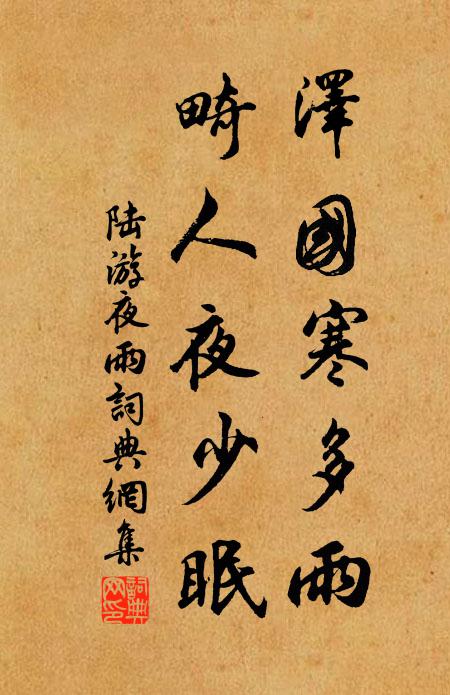 澤國寒多雨
畸人夜少眠
陆游夜雨詞典網集
詞典网印